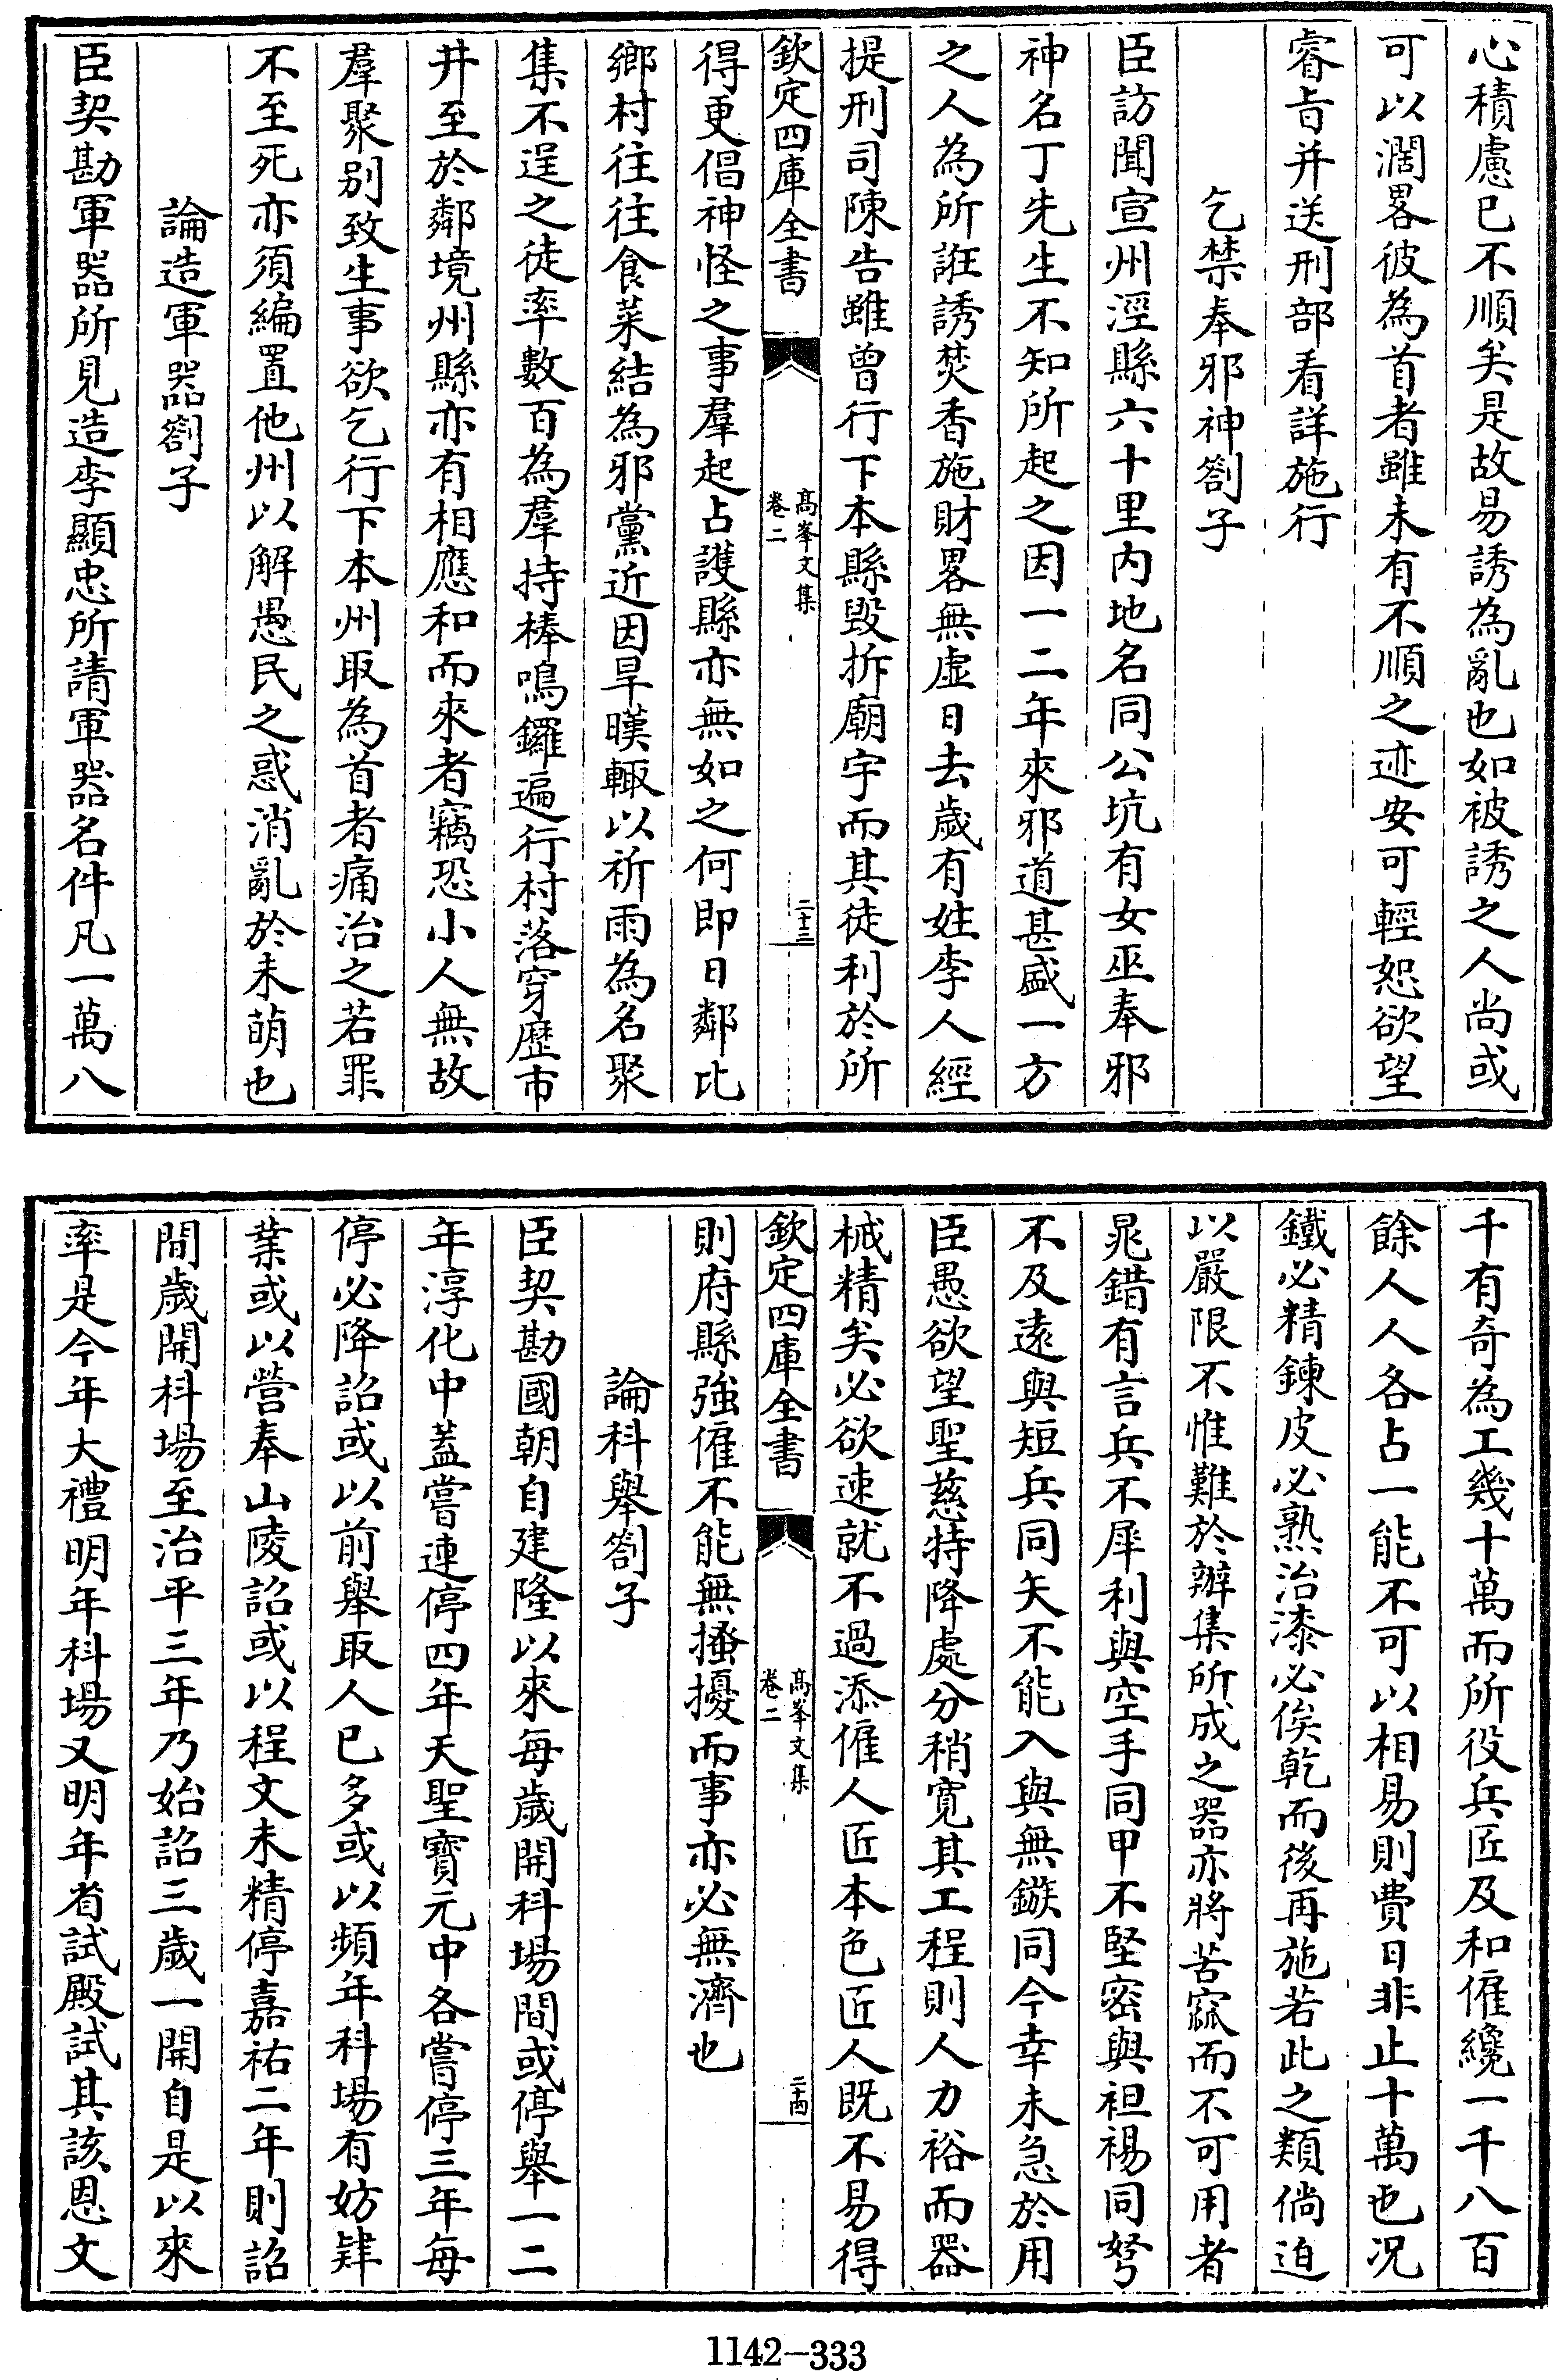 心積慮已不順矣是故易誘為亂也如被誘之人尚或
可以濶畧彼為首者雖未有不順之迹安可輕恕欲望
睿旨并送刑部看詳施行
乞禁奉邪神劄子
臣訪聞宣州涇縣六十里内地名同公坑有女巫奉邪
神名丁先生不知所起之因一二年來邪道甚盛一方
之人為所誑誘焚香施財畧無虚日去歲有姓李人經
提刑司陳告雖曾行下本縣毀拆廟宇而其徒利於所
欽定四庫全書
高峯文集
卷二
二十三
得更倡神怪之事羣起占護縣亦無如之何即日鄰比
鄉村往往食菜結為邪黨近因旱暵輙以祈雨為名聚
集不逞之徒率數百為羣持棒鳴鑼遍行村落穿歷市
井至於鄰境州縣亦有相應和而來者竊恐小人無故
羣聚别致生事欲乞行下本州取為首者痛治之若罪
不至死亦須編置他州以解愚民之惑消亂於未萌也
論造軍器劄子
臣契勘軍器所見造李顯忠所請軍器名件凡一萬八
千有奇為工幾十萬而所役兵匠及和僱纔一千八百
餘人人各占一能不可以相易則費日非止十萬也况
鐵必精鍊皮必熟治漆必俟乾而後再施若此之類倘迫
以嚴限不惟難於辦集所成之器亦將苦窳而不可用者
晁錯有言兵不犀利與空手同甲不堅密與袒裼同弩
不及遠與短兵同矢不能入與無鏃同今幸未急於用
臣愚欲望聖慈特降處分稍寛其工程則人力裕而器
械精矣必欲速就不過添僱人匠本色匠人既不易得
欽定四庫全書
高峯文集
卷二
二十四
則府縣強僱不能無搔擾而事亦必無濟也
論科舉劄子
臣契勘國朝自建隆以來每歲開科場間或停舉一二
年淳化中蓋嘗連停四年天聖寶元中各嘗停三年每
停必降詔或以前舉取人已多或以頻年科場有妨肄
業或以營奉山陵詔或以程文未精停嘉祐二年則詔
間歲開科場至治平三年乃始詔三歲一開自是以來
率是今年大禮明年科場又明年省試殿試其該恩文
1142-333